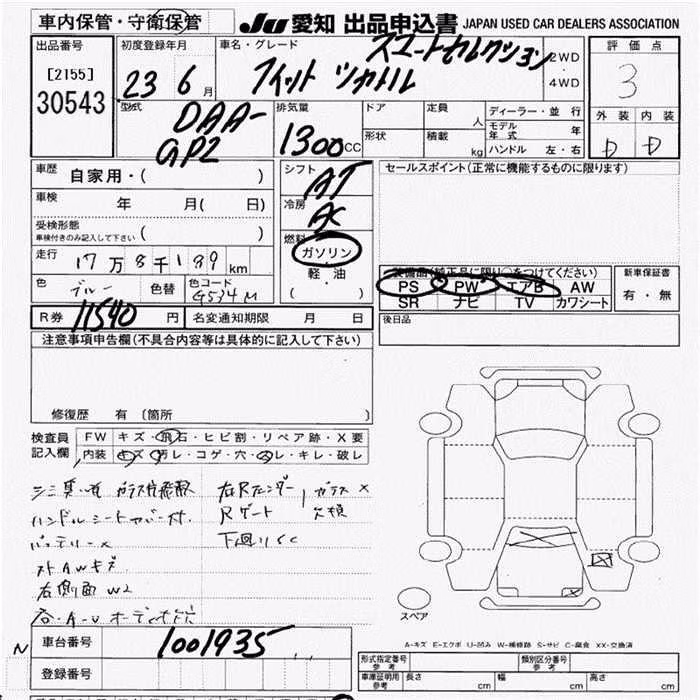 車内保管・守衛保管
JU 愛知 出品申込書 JAPAN USED CAR DEALERS ASSOCIATION
出品番号
[2155]
30543
初度登録年月
23 6 月
車名・グレード
スマートセレクション
フィット シャトル
2WD
・
4WD
評価点
3
外装 内装
D D
型式
DAA-
GP2
排気量
1300CC
ドア
形状
定員 人
積載 kg
ディーラー・並行
モデル年式 年
ハンドル 左・右
車歴
自家用・( )
車検 年 月( 日)
受検形態
車検付きのみ記入して下さい ( )
走行
17万8千189km
色 ブルー
色替
色コード
G534M
シフト
AT
冷房
AC
燃料
ガソリン
軽・油
( )
セールスポイント(正常に機能するものに限ります)
装備品(純正品に限り○をつけてください)
PS PW エアB AW
SR ナビ TV カワシート
新車保証書
有・無
R券 11540 円
名変通知期限 月 日
後日品
注意事項申告欄(不具合内容等は具体的に記入して下さい)
修復歴 有 〔箇所
検査員
記入欄
FW キズ・飛石・ヒビ割・リペア跡・X要
内装 キズ・汚レ・コゲ・穴・スレ・キレ・破レ
ハンドルシートカバー付
バッテリーX
右側面W2
右Rフェンダー
Rゲート
ガラスX
欠損
スペア
A-キズ E-エクボ U-凹み W-補修跡 S-サビ C-腐食 XX-交換済
N
車台番号
1001935
登録番号
形式指定番号
参考
類別区分番号
参考
車庫証明用
参考
長さ cm
幅 cm
高さ cm